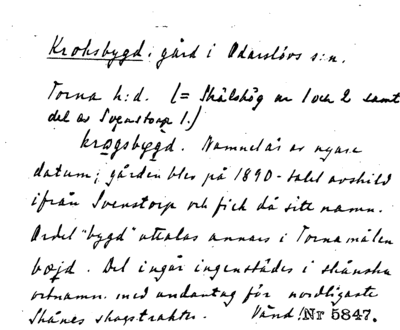 Kroksbygd. gård i Odarslövs s:n.
Torna h:d. (= Skälshög nr 1 och 2 samt
del av Svenstorp 1.)
krǫgsbygd. Namnet är av nyare
datum; gården blev på 1890-talet avskild
ifrån Svenstorp och fick då sitt namn.
Ordet "bygd" uttalas annars i Tornamålen
bøjd. Det ingår ingenstädes i skånska
ortnamn med undantag för nordligaste
Skånes skogstrakter. Vänd! Nr 5847.